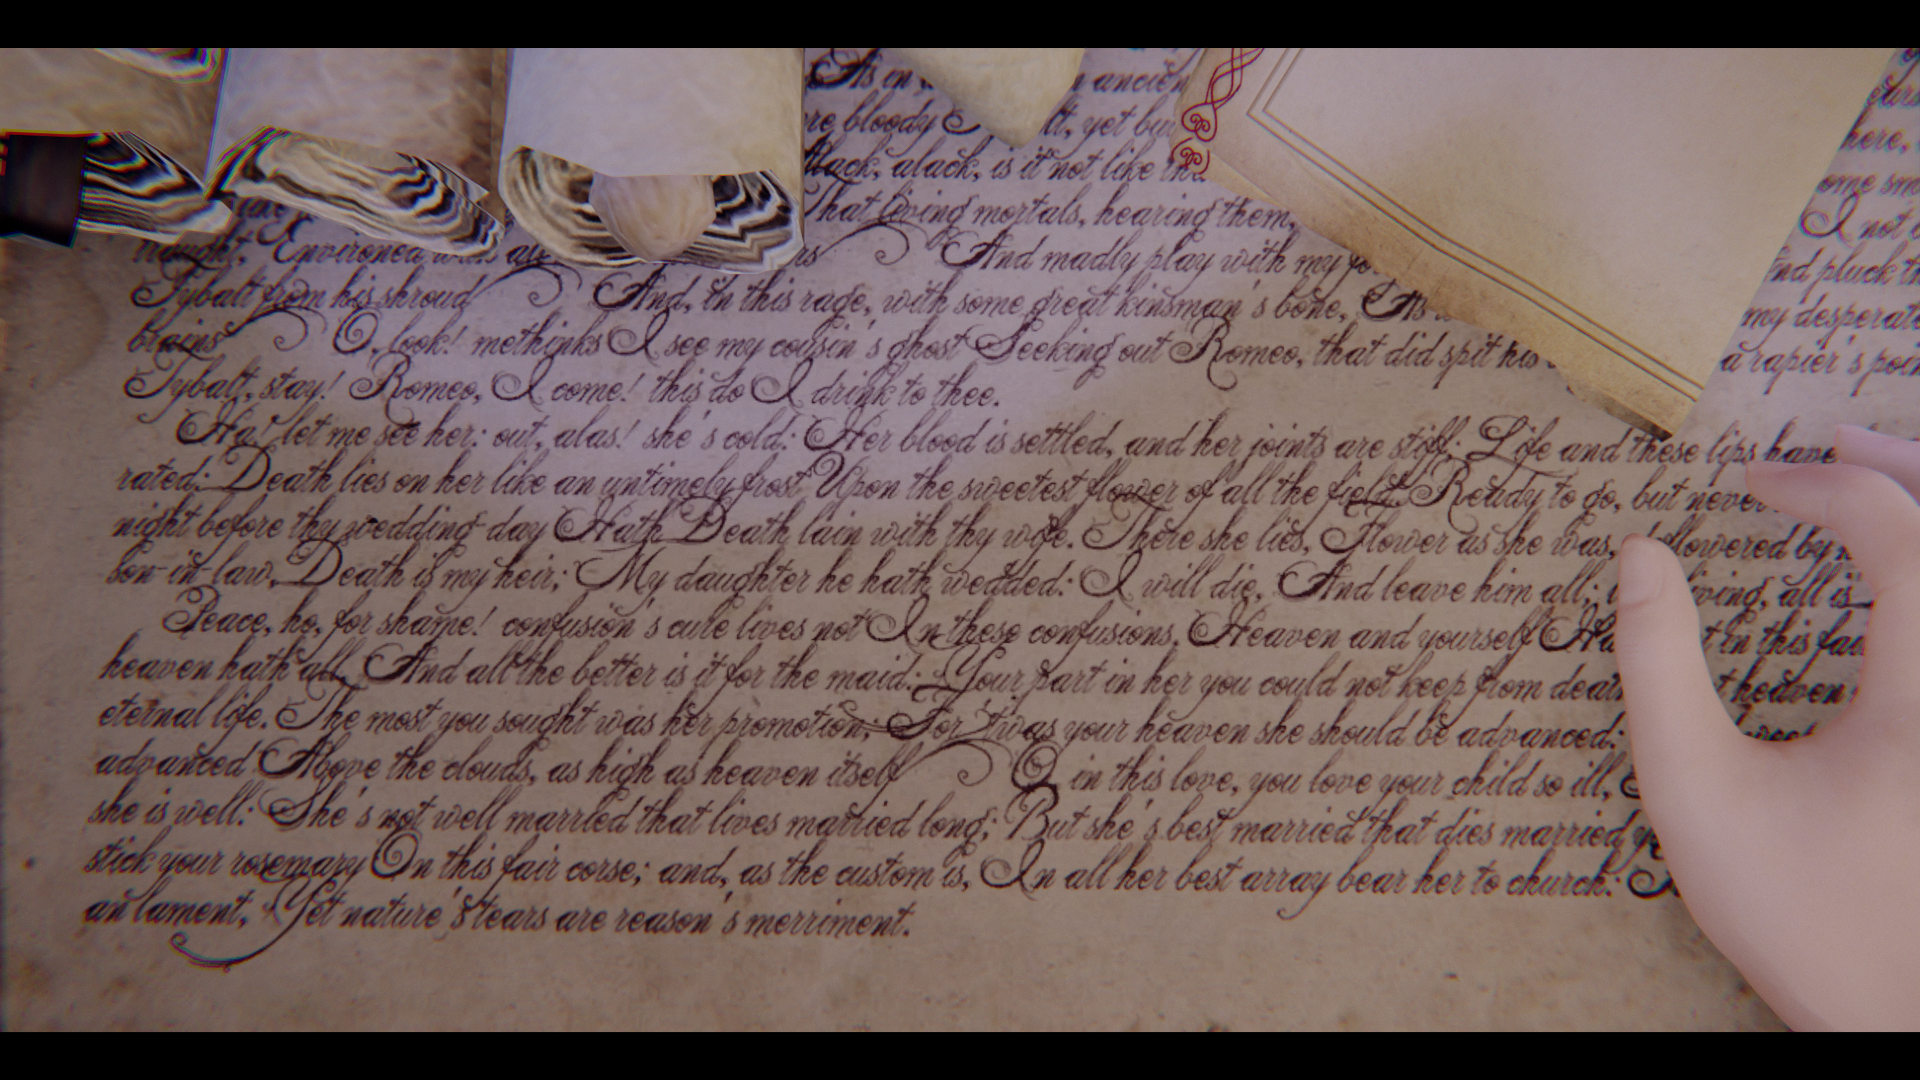 As in ancien
bloody yet bu
alack, is it not like
That living mortals, hearing them,
And madly play with my
Tybalt from his shroud And, in this rage, with some great kinsman's bone, As
brains O, look! methinks I see my cousin's ghost Seeking out Romeo, that did spit his a rapier's poin
Tybalt, stay! Romeo, I come! this do I drink to thee.
Ha! let me see her: out, alas! she's cold: Her blood is settled, and her joints are stiff; Life and these lips have
rated: Death lies on her like an untimely frost Upon the sweetest flower of all the field. Ready to go, but never
night before thy wedding-day Hath Death lain with thy wife. There she lies, Flower as she was, deflowered by
son-in-law, Death is my heir; My daughter he hath wedded: I will die, And leave him all; living, all is
Peace, ho, for shame! confusion's cure lives not In these confusions. Heaven and yourself in this fai
heaven hath all, And all the better is it for the maid: Your part in her you could not keep from death heaven
eternal life. The most you sought was her promotion; For 'twas your heaven she should be advanced:
advanced Above the clouds, as high as heaven itself O, in this love, you love your child so ill,
she is well: She's not well married that lives married long; But she's best married that dies married
stick your rosemary On this fair corse; and, as the custom is, In all her best array bear her to church:
an lament, Yet nature's tears are reason's merriment.